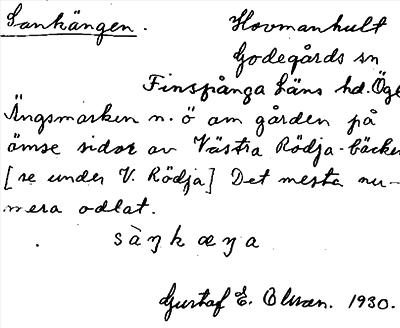 Sankängen. Hovmanhult
Godegårds sn
Finspånga läns hd. Ög
Ängsmarken n. ö om gården på
ömse sidor av Västra Rödja-bäcken
[se under V. Rödja] Det mesta nu-
mera odlat.
sàŋkæŋa
Gustaf E. Olsson. 1930.